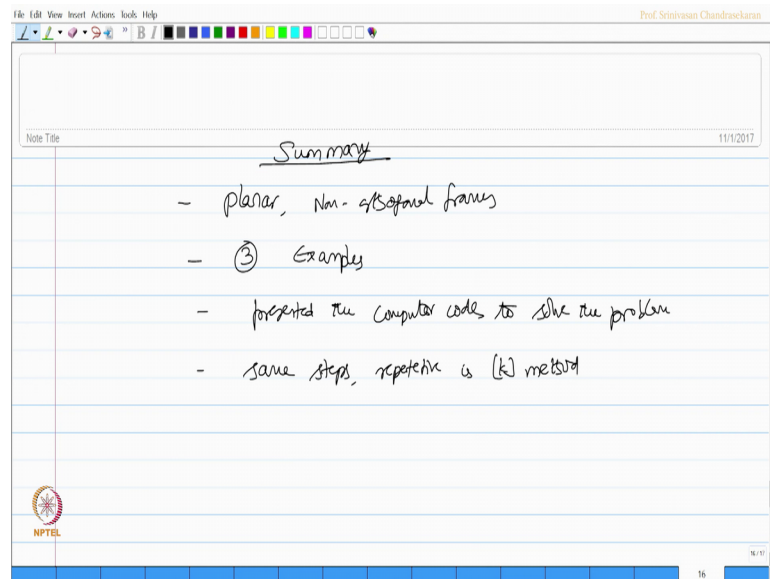 File Edit View Insert Actions Tools Help
Prof. Srinivasan Chandrasekaran
B I
Note Title
11/1/2017
Summary
- planar, Non-orthogonal frames
- ③ Examples
- presented the computer codes to solve the problem
- same steps, repetetive is [k] method
NPTEL
16/17
16